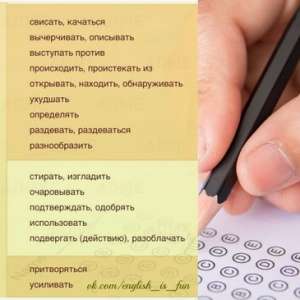 свисать, качаться
вычерчивать, описывать
выступать против
происходить, проистекать из
открывать, находить, обнаруживать
ухудшать
определять
раздевать, раздеваться
разнообразить
стирать, изгладить
очаровывать
подтверждать, одобрять
использовать
подвергать (действию), разоблачать
притворяться
усиливать
vk.com/english_is_fun